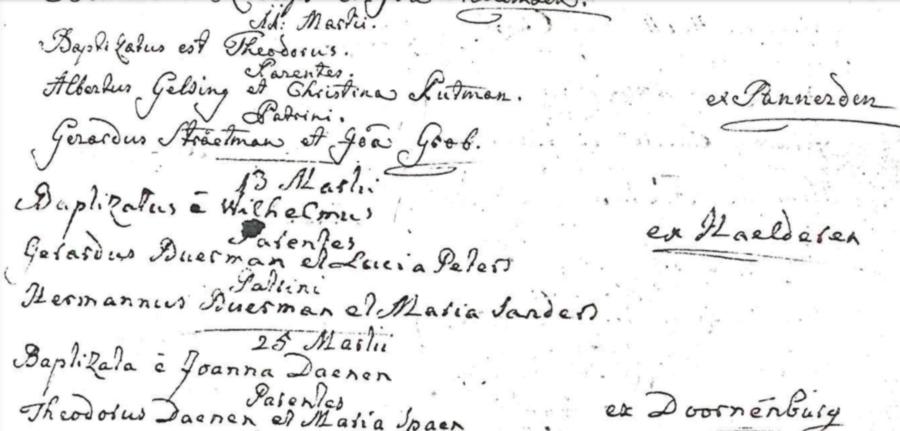 11: Martii.
Baptizatus est Theodorus.
Parentes.
Albertus Gelsing et Christina Rutman.
ex Pannerden
Patrini.
Gerardus Straetman et Joa Grob.
13 Martii
Baptizatus ē Wilhelmus
Parentes
ex Haelderen
Gerardus Buerman et Lucia Peters
Patrini
Hermannus Buerman et Maria Sanders
25 Martii
Baptizata ē Joanna Daenen
Parentes
ex Doornenburg
Theodorus Daenen et Maria Spaen